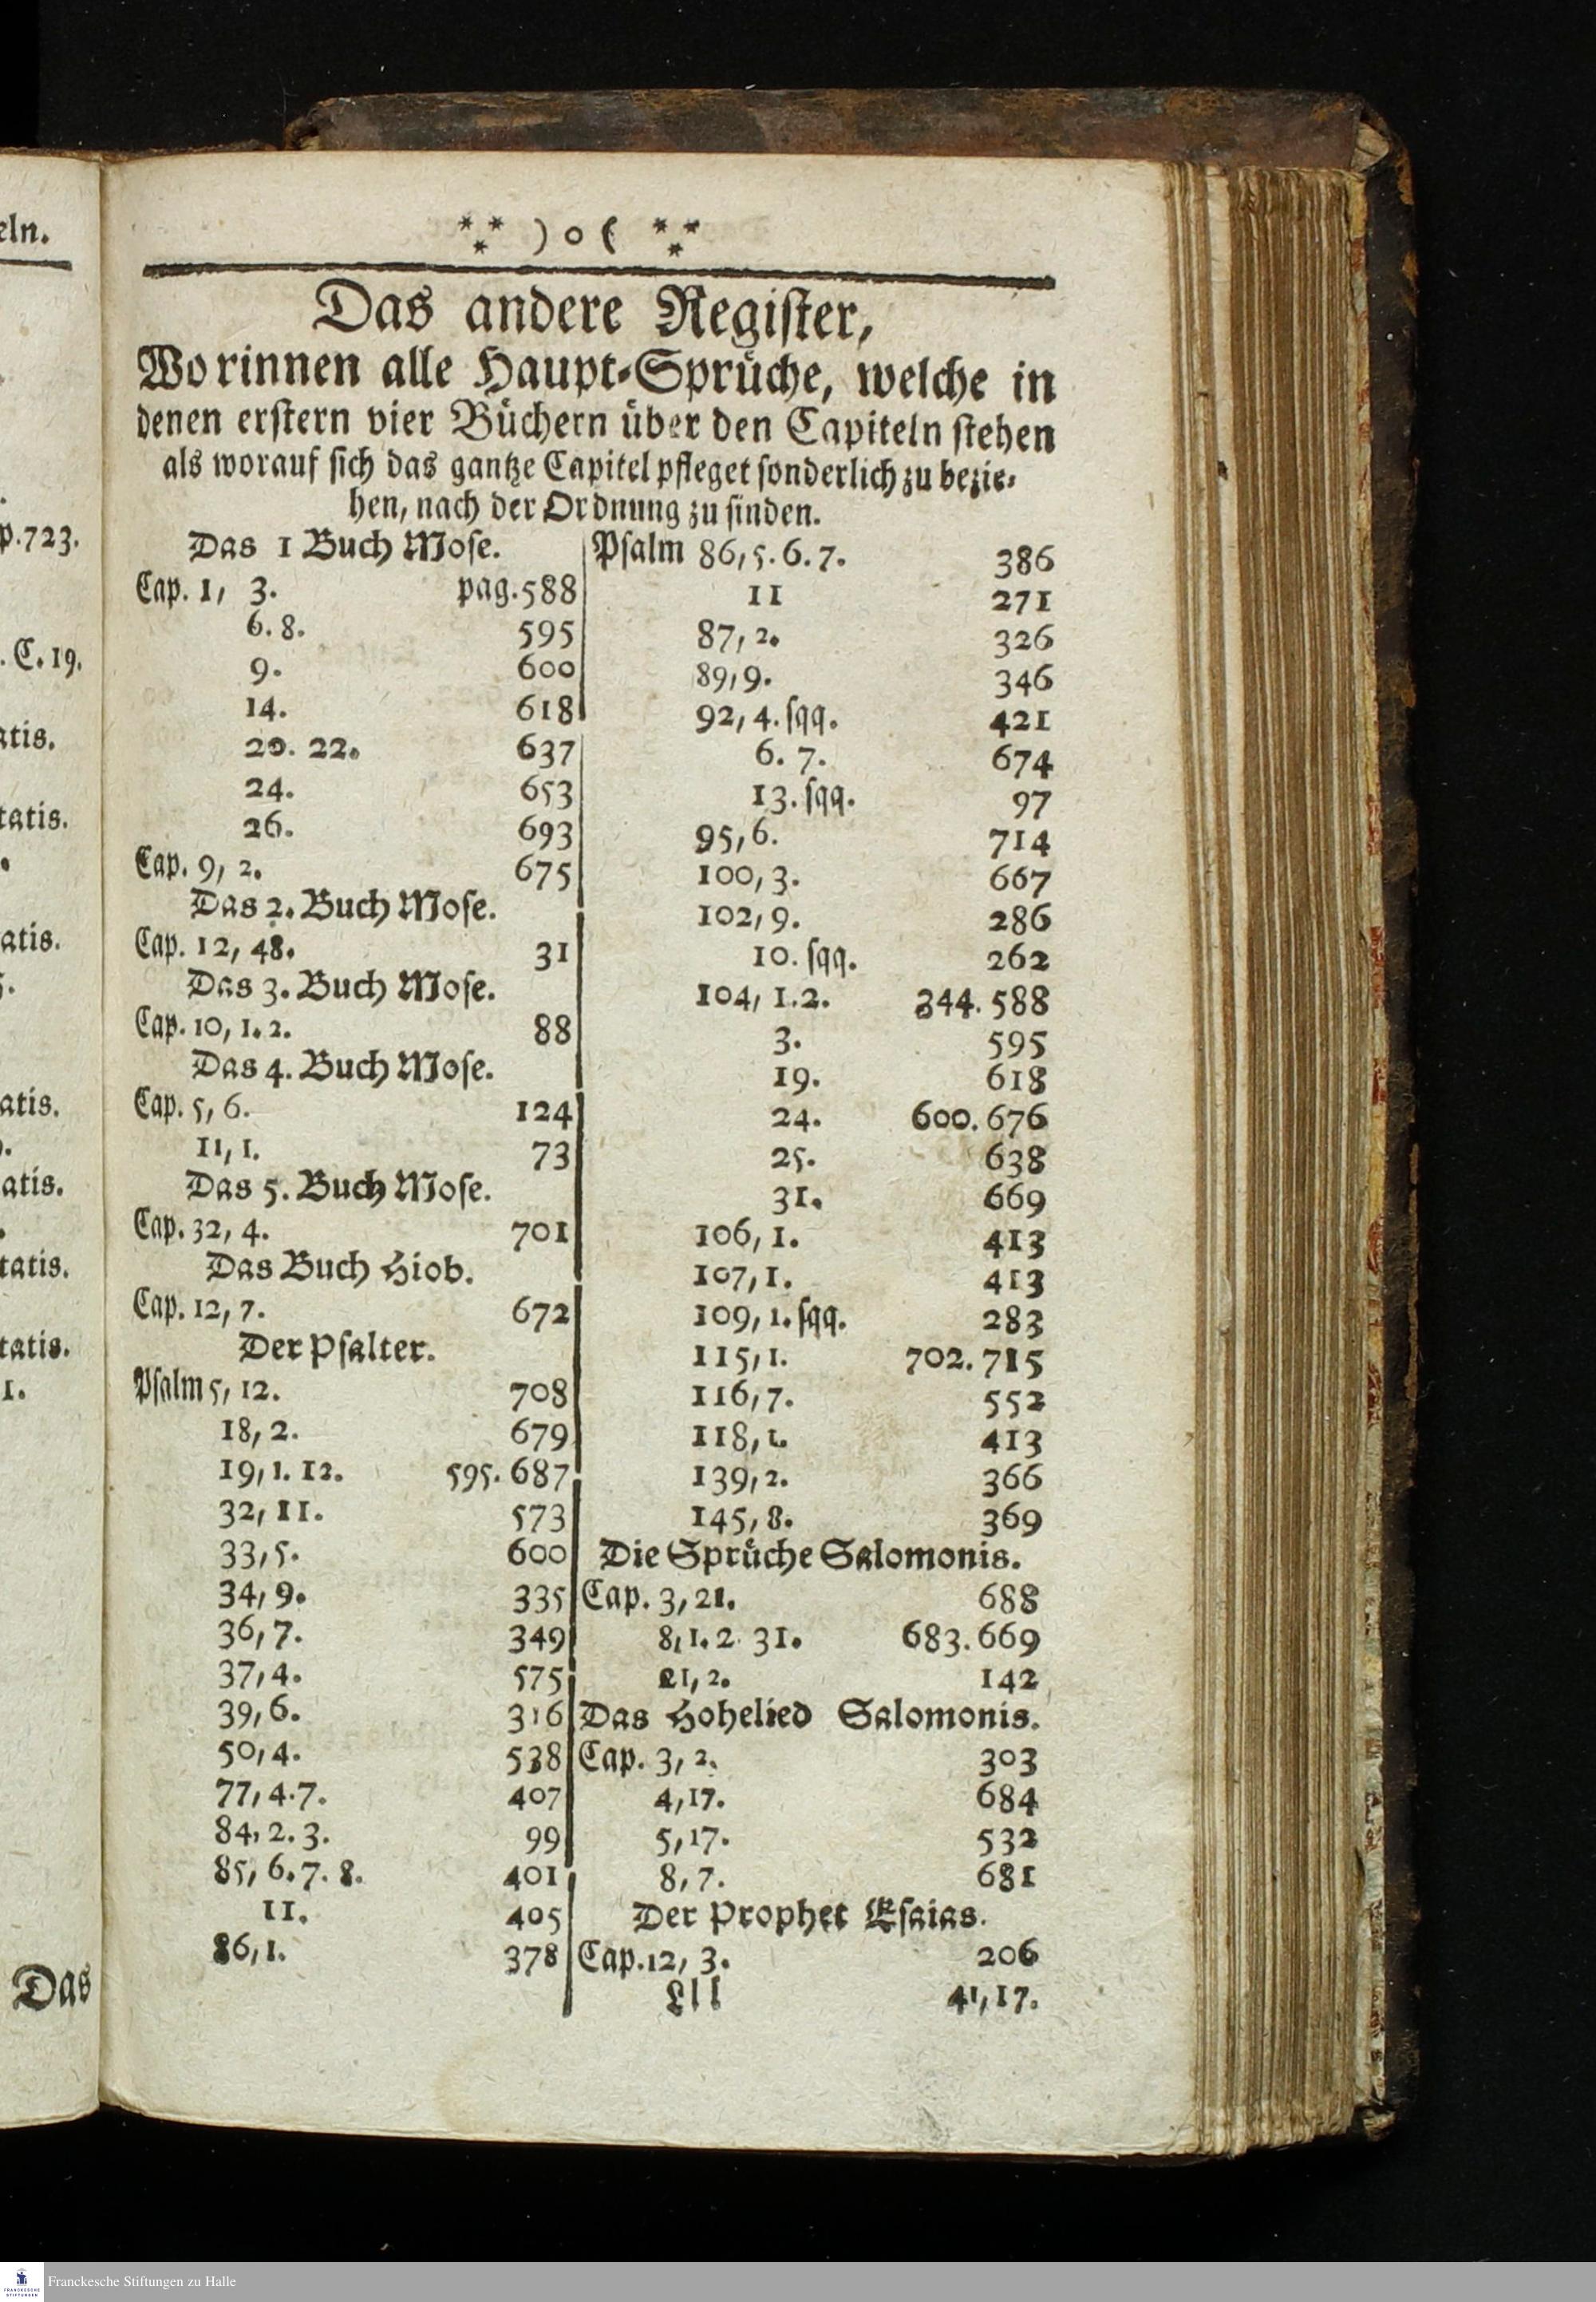 eln.
p.723.
. C. 19.
atis.
tatis.
atis.
atis.
atis.
tatis.
tatis.
1.
Das
** )o( **
Das andere Regiſter,
Worinnen alle Haupt-Sprüche, welche in
denen erſtern vier Büchern über den Capiteln ſtehen
als worauf ſich das gantze Capitel pfleget ſonderlich zu bezie-
hen, nach der Ordnung zu finden.
Das 1 Buch Moſe.
Cap. 1, 3. pag. 588
6. 8. 595
9. 600
14. 618
20. 22. 637
24. 653
26. 693
Cap. 9, 2. 675
Das 2. Buch Moſe.
Cap. 12, 48. 31
Das 3. Buch Moſe.
Cap. 10, 1. 2. 88
Das 4. Buch Moſe.
Cap. 5, 6. 124
11, 1. 73
Das 5. Buch Moſe.
Cap. 32, 4. 701
Das Buch Hiob.
Cap. 12, 7. 672
Der Pſalter.
Pſalm 5, 12. 708
18, 2. 679
19, 1. 12. 595. 687
32, 11. 573
33, 5. 600
34, 9. 335
36, 7. 349
37, 4. 575
39, 6. 316
50, 4. 538
77, 4. 7. 407
84, 2. 3. 99
85, 6. 7. 8. 401
11. 405
86, 1. 378
Pſalm 86, 5. 6. 7. 386
11 271
87, 2. 326
89, 9. 346
92, 4. ſqq. 421
6. 7. 674
13. ſqq. 97
95, 6. 714
100, 3. 667
102, 9. 286
10. ſqq. 262
104, 1. 2. 344. 588
3. 595
19. 618
24. 600. 676
25. 638
31. 669
106, 1. 413
107, 1. 413
109, 1. ſqq. 283
115, 1. 702. 715
116, 7. 552
118, 1. 413
139, 2. 366
145, 8. 369
Die Sprüche Salomonis.
Cap. 3, 21. 688
8, 1. 2 31. 683. 669
21, 2. 142
Das Hohelied Salomonis.
Cap. 3, 2. 303
4, 17. 684
5, 17. 532
8, 7. 681
Der Prophet Eſaias.
Cap. 12, 3. 206
Lll 41, 17.
Franckesche Stiftungen zu Halle